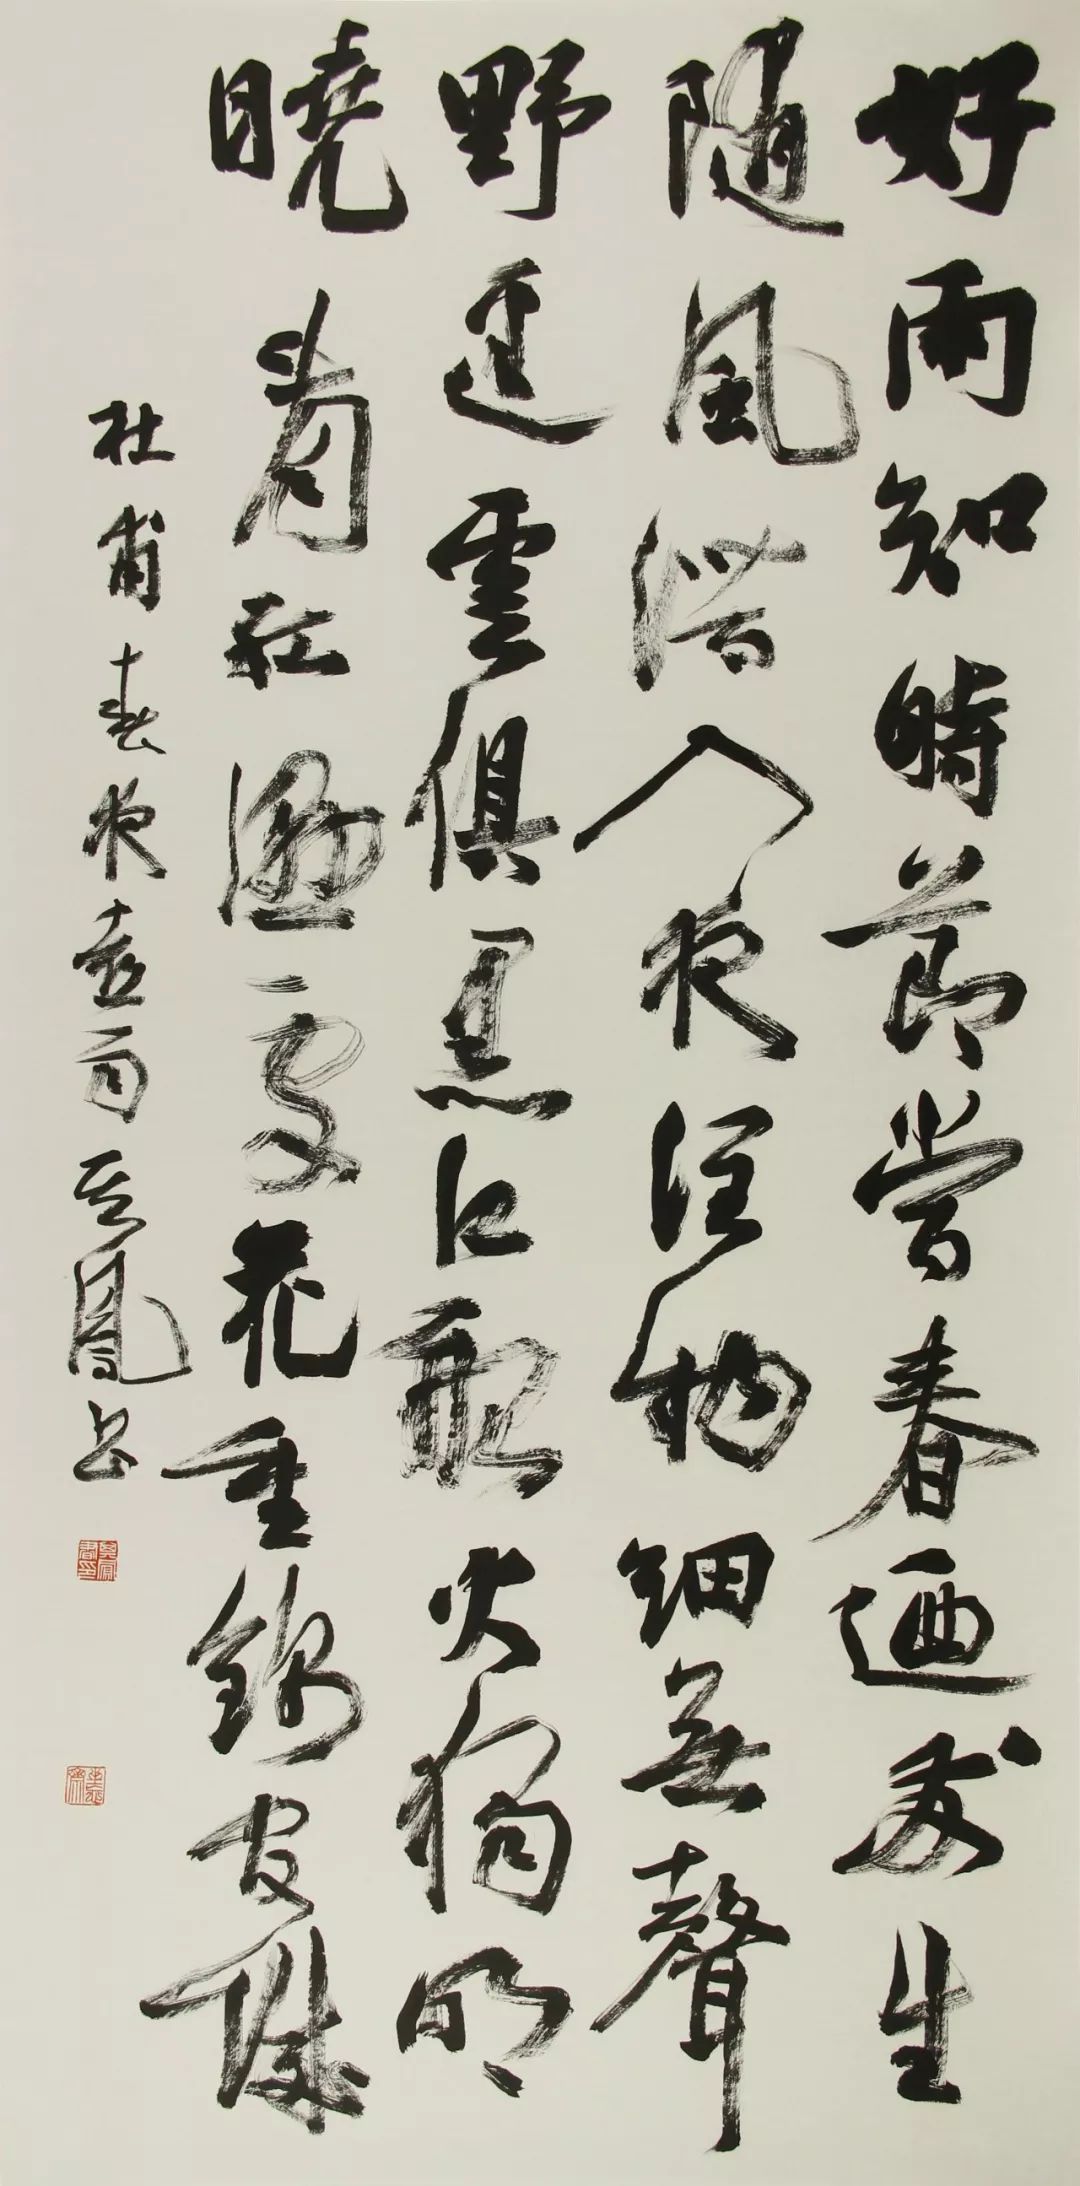 好雨知時節當春迺發生
隨風潛入夜潤物細無聲
野逕雲俱黑江船火獨明
曉看紅濕處花重錦官城
杜甫春夜喜雨 書